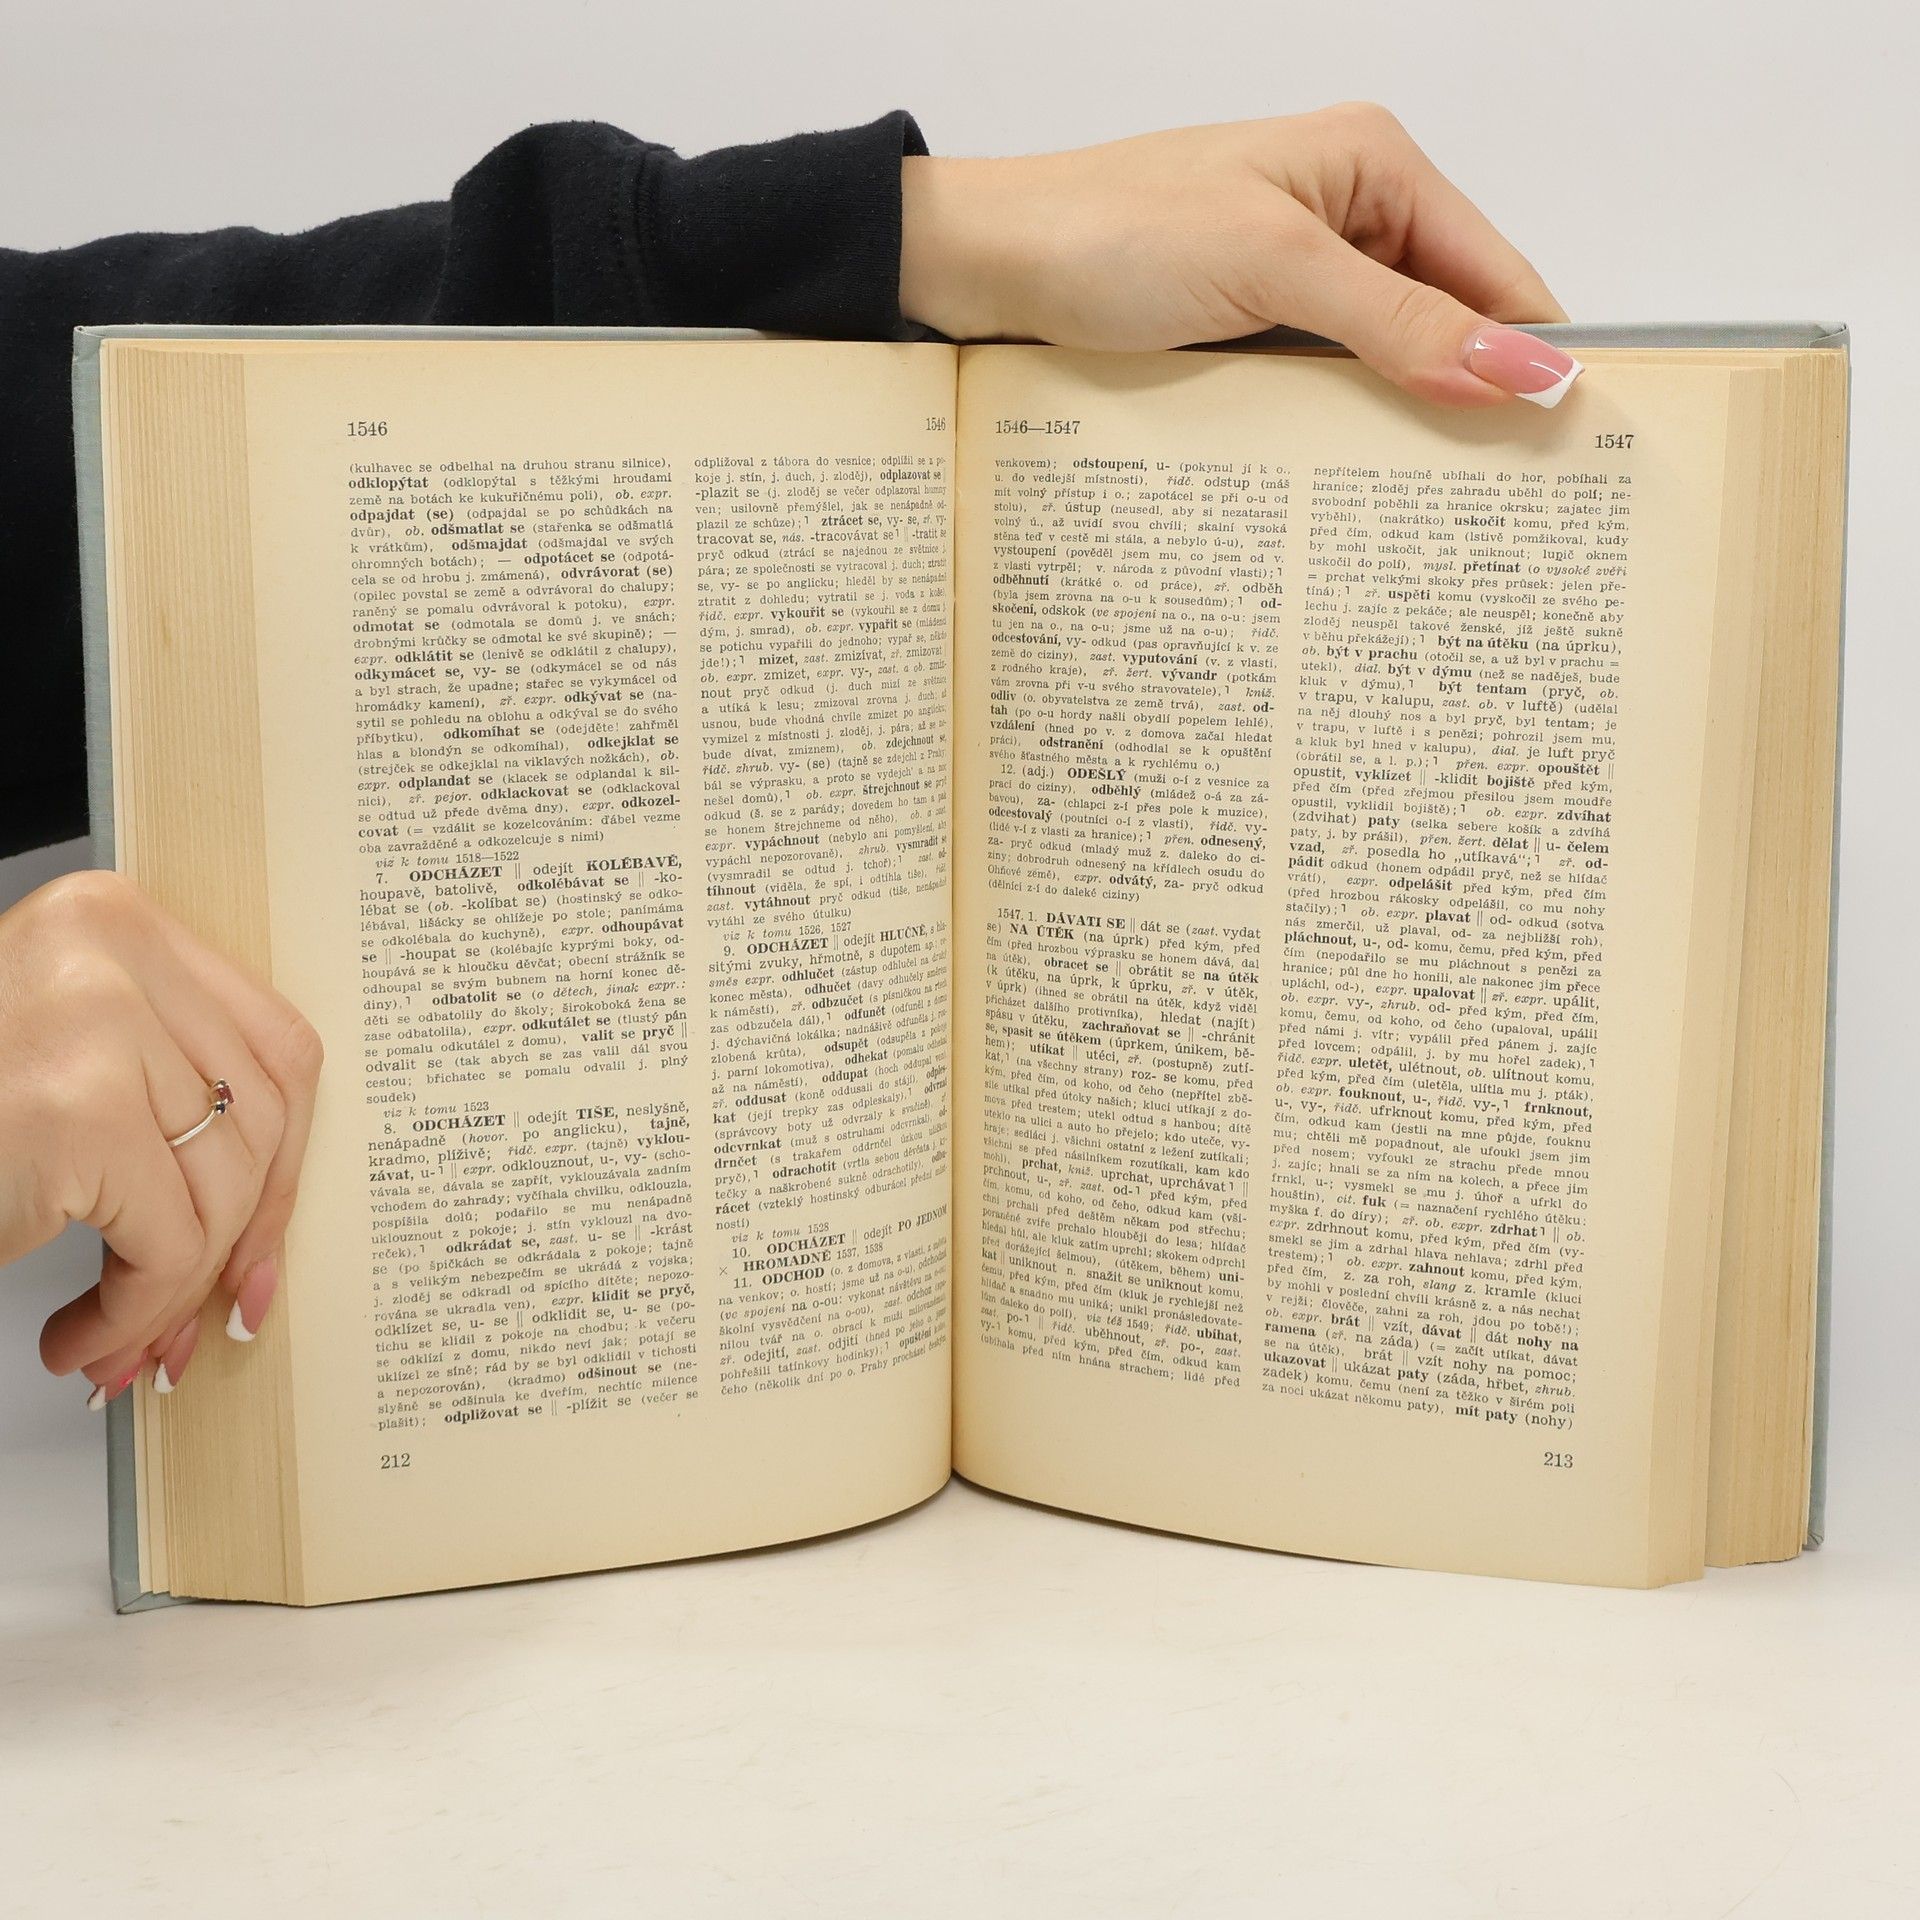 1546
1546
(kulhavec se odbelhal na druhou stranu silnice),
odklopýtat (odklopýtal s těžkými hroudami
země na botách ke kukuřičnému poli), ob. expr.
odpajdat (se) (odpajdal se po schůdkách na
dvůr), ob. odšmatlat se (stařenka se odšmatlá
k vrátkům), odšmajdat (odšmajdal ve svých
ohromných botách); — odpotácet se (odpotá-
cela se od hrobu j. zmámená), odvrávorat (se)
(opilec povstal se země a odvrávoral do chalupy;
raněný se pomalu odvrávoral k potoku), expr.
odmotat se (odmotala se domů j. ve snách;
drobnými krůčky se odmotal ke své skupině); —
expr. odklátit se (lenivě se odklátil z chalupy),
odkymácet se, vy- se (odkymácel se od nás
a byl strach, že upadne; stařec se vykymácel od
hromádky kamení), zř. expr. odkývat se (na-
sytil se pohledu na oblohu a odkýval se do svého
příbytku), odkomíhat se (odejděte! zahřměl
hlas a blondýn se odkomíhal), odkejklat se
(strejček se odkejklal na viklavých nožkách), ob.
expr. odplandat se (klacek se odplandal k sil-
nici), zř. pejor. odklackovat se (odklackoval
se odtud už přede dvěma dny), expr. odkozel-
covat (= vzdálit se kozelcováním: ďábel vezme
oba zavražděné a odkozelcuje s nimi)
viz k tomu 1518—1522
7. ODCHÁZET || odejít KOLÉBAVĚ,
houpavě, batolivě, odkolébávat se || -ko-
lébat se (ob. -kolíbat se) (hostinský se odko-
lébával, lišácky se ohlížeje po stole; panímáma
se odkolébala do kuchyně), expr. odhoupávat
se || -houpat se (kolébajíc kyprými boky, od-
houpává se k hloučku děvčat; obecní strážník se
odhoupal se svým bubnem na horní konec dě-
diny),˥ odbatolit se (o dětech, jinak expr.:
děti se odbatolily do školy; širokoboká žena se
zase odbatolila), expr. odkutálet se (tlustý pán
se pomalu odkutálel z domu), valit se pryč ||
odvalit se (tak abych se zas valil dál svou
cestou; břichatec se pomalu odvalil j. plný
soudek)
viz k tomu 1523
8. ODCHÁZET || odejít TIŠE, neslyšně,
nenápadně (hovor. po anglicku), tajně,
kradmo, plíživě; řidč. expr. (tajně) vyklou-
závat, u-˥ || expr. odklouznout, u-, vy- (scho-
vávala se, dávala se zapřít, vyklouzávala zadním
vchodem do zahrady; vyčíhala chvilku, odklouzla,
pospíšila dolů; podařilo se mu nenápadně
uklouznout z pokoje; j. stín vyklouzl na dvo-
reček),˥ odkrádat se, zast. u- se || -krást
se (po špičkách se odkrádala z pokoje; tajně
a s velikým nebezpečím se ukrádá z vojska;
j. zloděj se odkradl od spícího dítěte; nepozo-
rována se ukradla ven), expr. klidit se pryč,
odklízet se, u- se || odklidit se, u- se (po-
tichu se klidil z pokoje na chodbu; k večeru
se odklízí z domu, nikdo neví jak; potají se
uklízel ze síně; rád by se byl odklidil v tichosti
a nepozorován), (kradmo) odšinout se (ne-
slyšně se odšinula ke dveřím, nechtíc milence
plašit); odpližovat se || -plížit se (večer se
212
odplížoval z tábora do vesnice; odplížil se z po-
koje j. stín, j. duch, j. zloděj), odplazovat se ||
-plazit se (j. zloděj se večer odplazoval humny
ven; usilovně přemýšlel, jak se nenápadně od-
plazil ze schůze);˥ ztrácet se, vy- se, zř. vy-
tracovat se, nás. -tracovávat se˥ || -tratit se
pryč odkud (ztrácí se najednou ze světnice j.
pára; ze společnosti se vytracoval j. duch; ztratit
se, vy- se po anglicku; hleděl by se nenápadně
ztratit z dohledu; vytratil se j. voda z koše),
řidč. expr. vykouřit se (vykouřil se z domu j.
dým, j. smrad), ob. expr. vypařit se (mládenci
se potichu vypařili do jednoho; vypař se, někdo
jde!);˥ mizet, zast. zmizívat, zř. zmizovat
ob. expr. zmizet, expr. vy-, zast. a ob. zmiz-
nout pryč odkud (j. duch mizí ze světnice
a utíká k lesu; zmizoval zrovna j. duch; až
usnou, bude vhodná chvíle zmizet po anglicku;
vymizel z místnosti j. zloděj, j. pára; až se ne-
bude dívat, zmiznem), ob. zdejchnout se,
řidč. zhrub. vy- (se) (tajně se zdejchl z Prahy;
bál se výprasku, a proto se vydejch' a na noc
nešel domů),˥ ob. expr. štrejchnout se pryč
odkud (š. se z parády; dovedem ho tam a pak
se honem štrejchneme od něho), ob. a zast.
expr. vypáchnout (nebylo ani pomyšlení, aby
vypáchl nepozorovaně), zhrub. vysmradit se
(vysmradil se odtud j. tchoř);˥ zast. od-
tíhnout (viděla, že spí, i odtíhla tiše), řidč.
zast. vytáhnout pryč odkud (tiše, nenápadně
vytáhl ze svého útulku)
viz k tomu 1526, 1527
9. ODCHÁZET || odejít HLUČNĚ, s hla-
sitými zvuky, hřmotně, s dupotem ap.; ve
směs expr. odhlučet (zástup odhlučel na druhý
konec města), odhučet (davy odhučely směrem
k náměstí), zř. odbzučet (s písničkou na rtech
zas odbzučela dál),˥ odfunět (odfuněl z domu
j. dýchavičná lokálka; nadnášivě odfuněla j. roz-
zlobená krůta), odsupět (odsupěla z pokoje
j. parní lokomotiva), odhekat (pomalu odhekal
až na náměstí), oddupat (hoch oddupal ven),
zř. oddusat (koně oddusali do stájí), odples-
kat (její trepky zas odpleskaly),˥ odvrzat
(správcovy boty už odvrzaly k svačině), zř.
odcvrnkat (muž s ostruhami odcvrnkal), od-
drnčet (s trakařem oddrnčel úzkou uličkou
pryč),˥ odrachotit (vrtla sebou děvčata j. kr-
tečky a naškrobené sukně odrachotily), odbu-
rácet (vzteklý hostinský odburácel přední míst-
ností)
viz k tomu 1528
10. ODCHÁZET || odejít PO JEDNOM
× HROMADNĚ 1537, 1538
11. ODCHOD (o. z domova, z vlasti, z města
na venkov; o. hostí; jsme už na o-u), odchodná
(ve spojení na o-ou: vykonat návštěvu na o-ou;
školní vysvědčení na o-ou), zast. odchoz
nilou tvář na o. obrací k muži milovanému),
zř. odejití, zast. odjití (hned po jeho o. jsme
pohřešili tatínkovy hodinky);˥ opuštění koho,
čeho (několik dní po o. Prahy procházel českým
1546—1547
1547
venkovem); odstoupení, u- (pokynul jí k o.,
u. do vedlejší místnosti), řidč. odstup (máš
mít volný přístup i o.; zapotácel se při o-u od
stolu), zř. ústup (neusedl, aby si nezatarasil
volný ú., až uvidí svou chvíli; skalní vysoká
stěna teď v cestě mi stála, a nebylo ú-u), zast.
vystoupení (pověděl jsem mu, co jsem od v.
z vlasti vytrpěl; v. národa z původní vlasti);˥
odběhnutí (krátké o. od práce), zř. odběh
(byla jsem zrovna na o-u k sousedům);˥ od-
skočení, odskok (ve spojení na o., na o-u: jsem
tu jen na o., na o-u; jsme už na o-u); řidč.
odcestování, vy- odkud (pas opravňující k v. ze
země do ciziny), zast. vyputování (v. z vlasti,
z rodného kraje), zř. žert. vývandr (potkám
vám zrovna při v-u svého stravovatele),˥ kniž.
odliv (o. obyvatelstva ze země trvá), zast. od-
tah (po o-u hordy našli obydlí popelem lehlé),
vzdálení (hned po v. z domova začal hledat
práci), odstranění (odhodlal se k opuštění
svého šťastného města a k rychlému o.)
12. (adj.) ODEŠLÝ (muži o-í z vesnice za
prací do ciziny), odběhlý (mládež o-á za zá-
bavou), za- (chlapci z-í přes pole k muzice),
odcestovalý (poutníci o-í z vlasti), řidč. vy-
(lidé v-í z vlasti za hranice);˥ přen. odnesený,
za- pryč odkud (mladý muž z. daleko do ci-
ziny; dobrodruh odnesený na křídlech osudu do
Ohňové země), expr. odvátý, za- pryč odkud
(dělníci z-í do daleké ciziny)
1547. 1. DÁVATI SE || dát se (zast. vydat
se) NA ÚTĚK (na úprk) před kým, před
čím (před hrozbou výprasku se honem dává, dal
na útěk), obracet se || obrátit se na útěk
(k útěku, na úprk, k úprku, zř. v útěk,
v úprk) (ihned se obrátil na útěk, když viděl
přicházet dalšího protivníka), hledat (najít)
spásu v útěku, zachraňovat se || -chránit
se, spasit se útěkem (úprkem, únikem, bě-
hem); utíkat || utéci, zř. (postupně) zutí-
kat,˥ (na všechny strany) roz- se komu, před
kým, před čím, od koho, od čeho (nepřítel zbě-
sile utíkal před útoky našich; kluci utíkají z do-
mova před trestem; utekl odtud s hanbou; dítě
uteklo na ulici a auto ho přejelo; kdo uteče, vy-
hraje; sedláci j. všichni ostatní z ležení zutíkali;
všichni se před násilníkem rozutíkali, kam kdo
mohl), prchat, kniž. uprchat, uprchávat˥ ||
prchnout, u-, zř. zast. od-˥ před kým, před
čím, komu, od koho, od čeho, odkud kam (vši-
chni prchali před deštěm někam pod střechu;
poraněné zvíře prchalo hlouběji do lesa; hlídač
hledal hůl, ale kluk zatím uprchl; skokem odprchl
před dorážející šelmou), (útěkem, během) uni-
kat || uniknout n. snažit se uniknout komu,
čemu, před kým, před čím (kluk je rychlejší než
hlídač a snadno mu uniká; unikl pronásledovate-
lům daleko do polí), viz též 1549; řidč. ubíhat,
zast. po-˥ || řidč. uběhnout, zř. po-, zast.
vy-˥ komu, před kým, před čím, odkud kam
(ubíhala před ním hnána strachem; lidé před
nepřítelem houfně ubíhali do hor, pobíhali za
hranice; zloděj přes zahradu uběhl do polí; ne-
svobodní poběhli za hranice okrsku; zajatec jim
vyběhl), (nakrátko) uskočit komu, před kým,
před čím, odkud kam (lstivě pomžikoval, kudy
by mohl uskočit, jak uniknout; lupič oknem
uskočil do polí), mysl. přetínat (o vysoké zvěři
= prchat velkými skoky přes průsek: jelen pře-
tíná);˥ zř. uspěti komu (vyskočil ze svého pe-
lechu j. zajíc z pekáče; ale neuspěl; konečně aby
zloděj neuspěl takové ženské, jíž ještě sukně
v běhu překážejí);˥ být na útěku (na úprku),
ob. být v prachu (otočil se, a už byl v prachu =
utekl), dial. být v dýmu (než se naděješ, bude
kluk v dýmu),˥ být tentam (pryč, ob.
v trapu, v kalupu, zast. ob. v luftě) (udělal
na něj dlouhý nos a byl pryč, byl tentam; je
v trapu, v luftě i s penězi; pohrozil jsem mu,
a kluk byl hned v kalupu), dial. je luft pryč
(obrátil se, a l. p.);˥ přen. expr. opouštět ||
opustit, vyklízet || -klidit bojiště před kým,
před čím (před zřejmou přesilou jsem moudře
opustil, vyklidil bojiště);˥ ob. expr. zdvíhat
(zdvihat) paty (selka sebere košík a zdvíhá
paty, j. by prášil), přen. žert. dělat || u- čelem
vzad, zř. posedla ho „utíkavá“;˥ zř. od-
pádit odkud (honem odpádil pryč, než se hlídač
vrátí), expr. odpelášit před kým, před čím
(před hrozbou rákosky odpelášil, co mu nohy
stačily);˥ ob. expr. plavat || od- odkud (sotva
nás zmerčil, už plaval, od- za nejbližší roh),
pláchnout, u-, od- komu, čemu, před kým, před
čím (nepodařilo se mu pláchnout s penězi za
hranice; půl dne ho honili, ale nakonec jim přece
upláchl, od-), expr. upalovat || zř. expr. upálit,
ob. expr. vy-, zhrub. od- před kým, před čím,
komu, čemu, od koho, od čeho (upaloval, upálil
před námi j. vítr; vypálil před pánem j. zajíc
před lovcem; odpálil, j. by mu hořel zadek),˥
řidč. expr. uletět, ulétnout, ob. ulítnout komu,
před kým, před čím (uletěla, ulítla mu j. pták),
ob. expr. fouknout, u-, řidč. vy-,˥ frnknout,
u-, vy-, řidč. ufrknout komu, před kým, před
čím, odkud kam (jestli na mne půjde, fouknu
mu; chtěli mě popadnout, ale ufoukl jsem jim
před nosem; vyfoukl ze strachu přede mnou
j. zajíc; hnali se za ním na kolech, a přece jim
frnkl, u-; vysmekl se mu j. úhoř a ufrkl do
houštin), cit. fuk (= naznačení rychlého útěku:
myška f. do díry); zř. ob. expr. zdrhat˥ || ob.
expr. zdrhnout komu, před kým, před čím (vy-
smekl se jim a zdrhal hlava nehlava; zdrhl před
trestem);˥ ob. expr. zahnout komu, před kým,
před čím, z. za roh, slang z. kramle (kluci
by mohli v poslední chvíli krásně z. a nás nechat
v rejži; člověče, zahni za roh, jdou po tobě!);
ob. expr. brát || vzít, dávat || dát nohy na
ramena (zř. na záda) (= začít utíkat, dávat
se na útěk), brát || vzít nohy na pomoc;
ukazovat || ukázat paty (záda, hřbet, zhrub.
zadek) komu, čemu (není za těžko v širém poli
za noci ukázat někomu paty), mít paty (nohy)
213